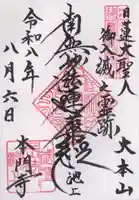 日蓮大聖人
御入滅之霊跡
大本山
池上
南無妙法蓮華経
本門寺
令和八年
八月六日